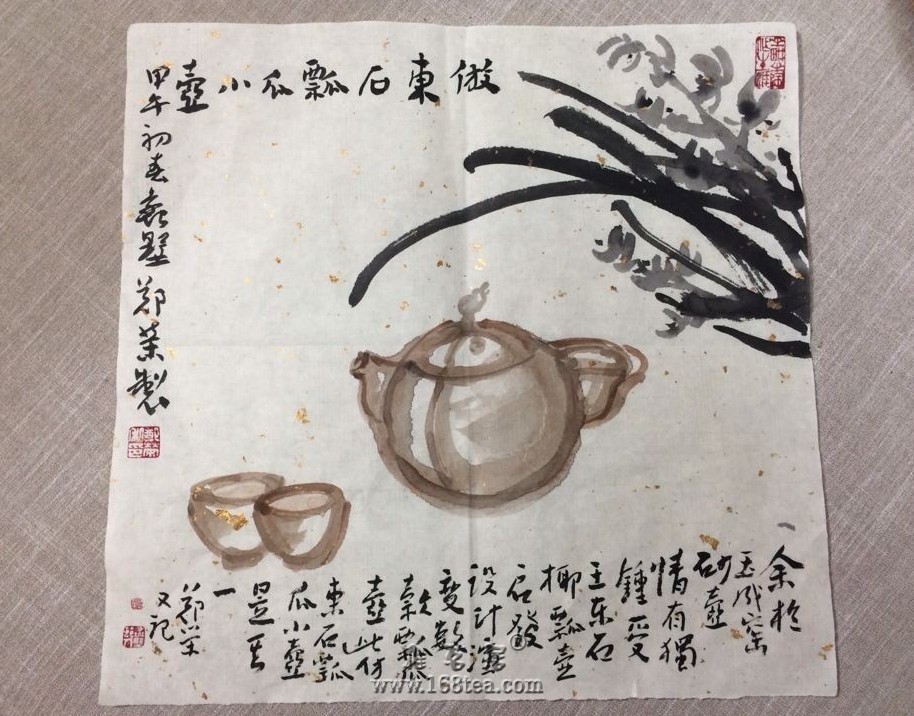 倣東石瓢瓜小壺
甲午初春
鄭荣製
余於
玉成窑
砂壺
情有獨
鍾受
王东石
椰瓢壺
启發
設計演
變數
款瓢
壺此仿
東石瓢
瓜小壺
是其
一
鄭荣
又记
www.168tea.com